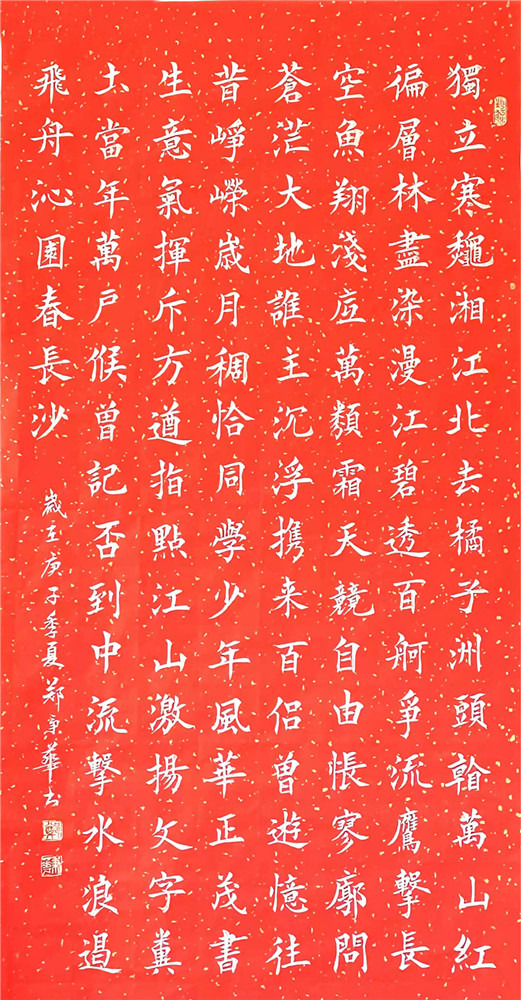 獨立寒龝湘江北去橘子洲頭看萬山紅
徧層林盡染漫江碧透百舸爭流鷹擊長
空魚翔淺底萬類霜天競自由悵寥廓問
蒼茫大地誰主沉浮携来百侣曾遊憶往
昔崢嶸歲月稠恰同學少年風華正茂書
生意氣揮斥方遒指點江山激揚文字糞
土當年萬戶侯曾記否到中流擊水浪遏
飛舟沁園春長沙
歲在庚子季夏郑京華书